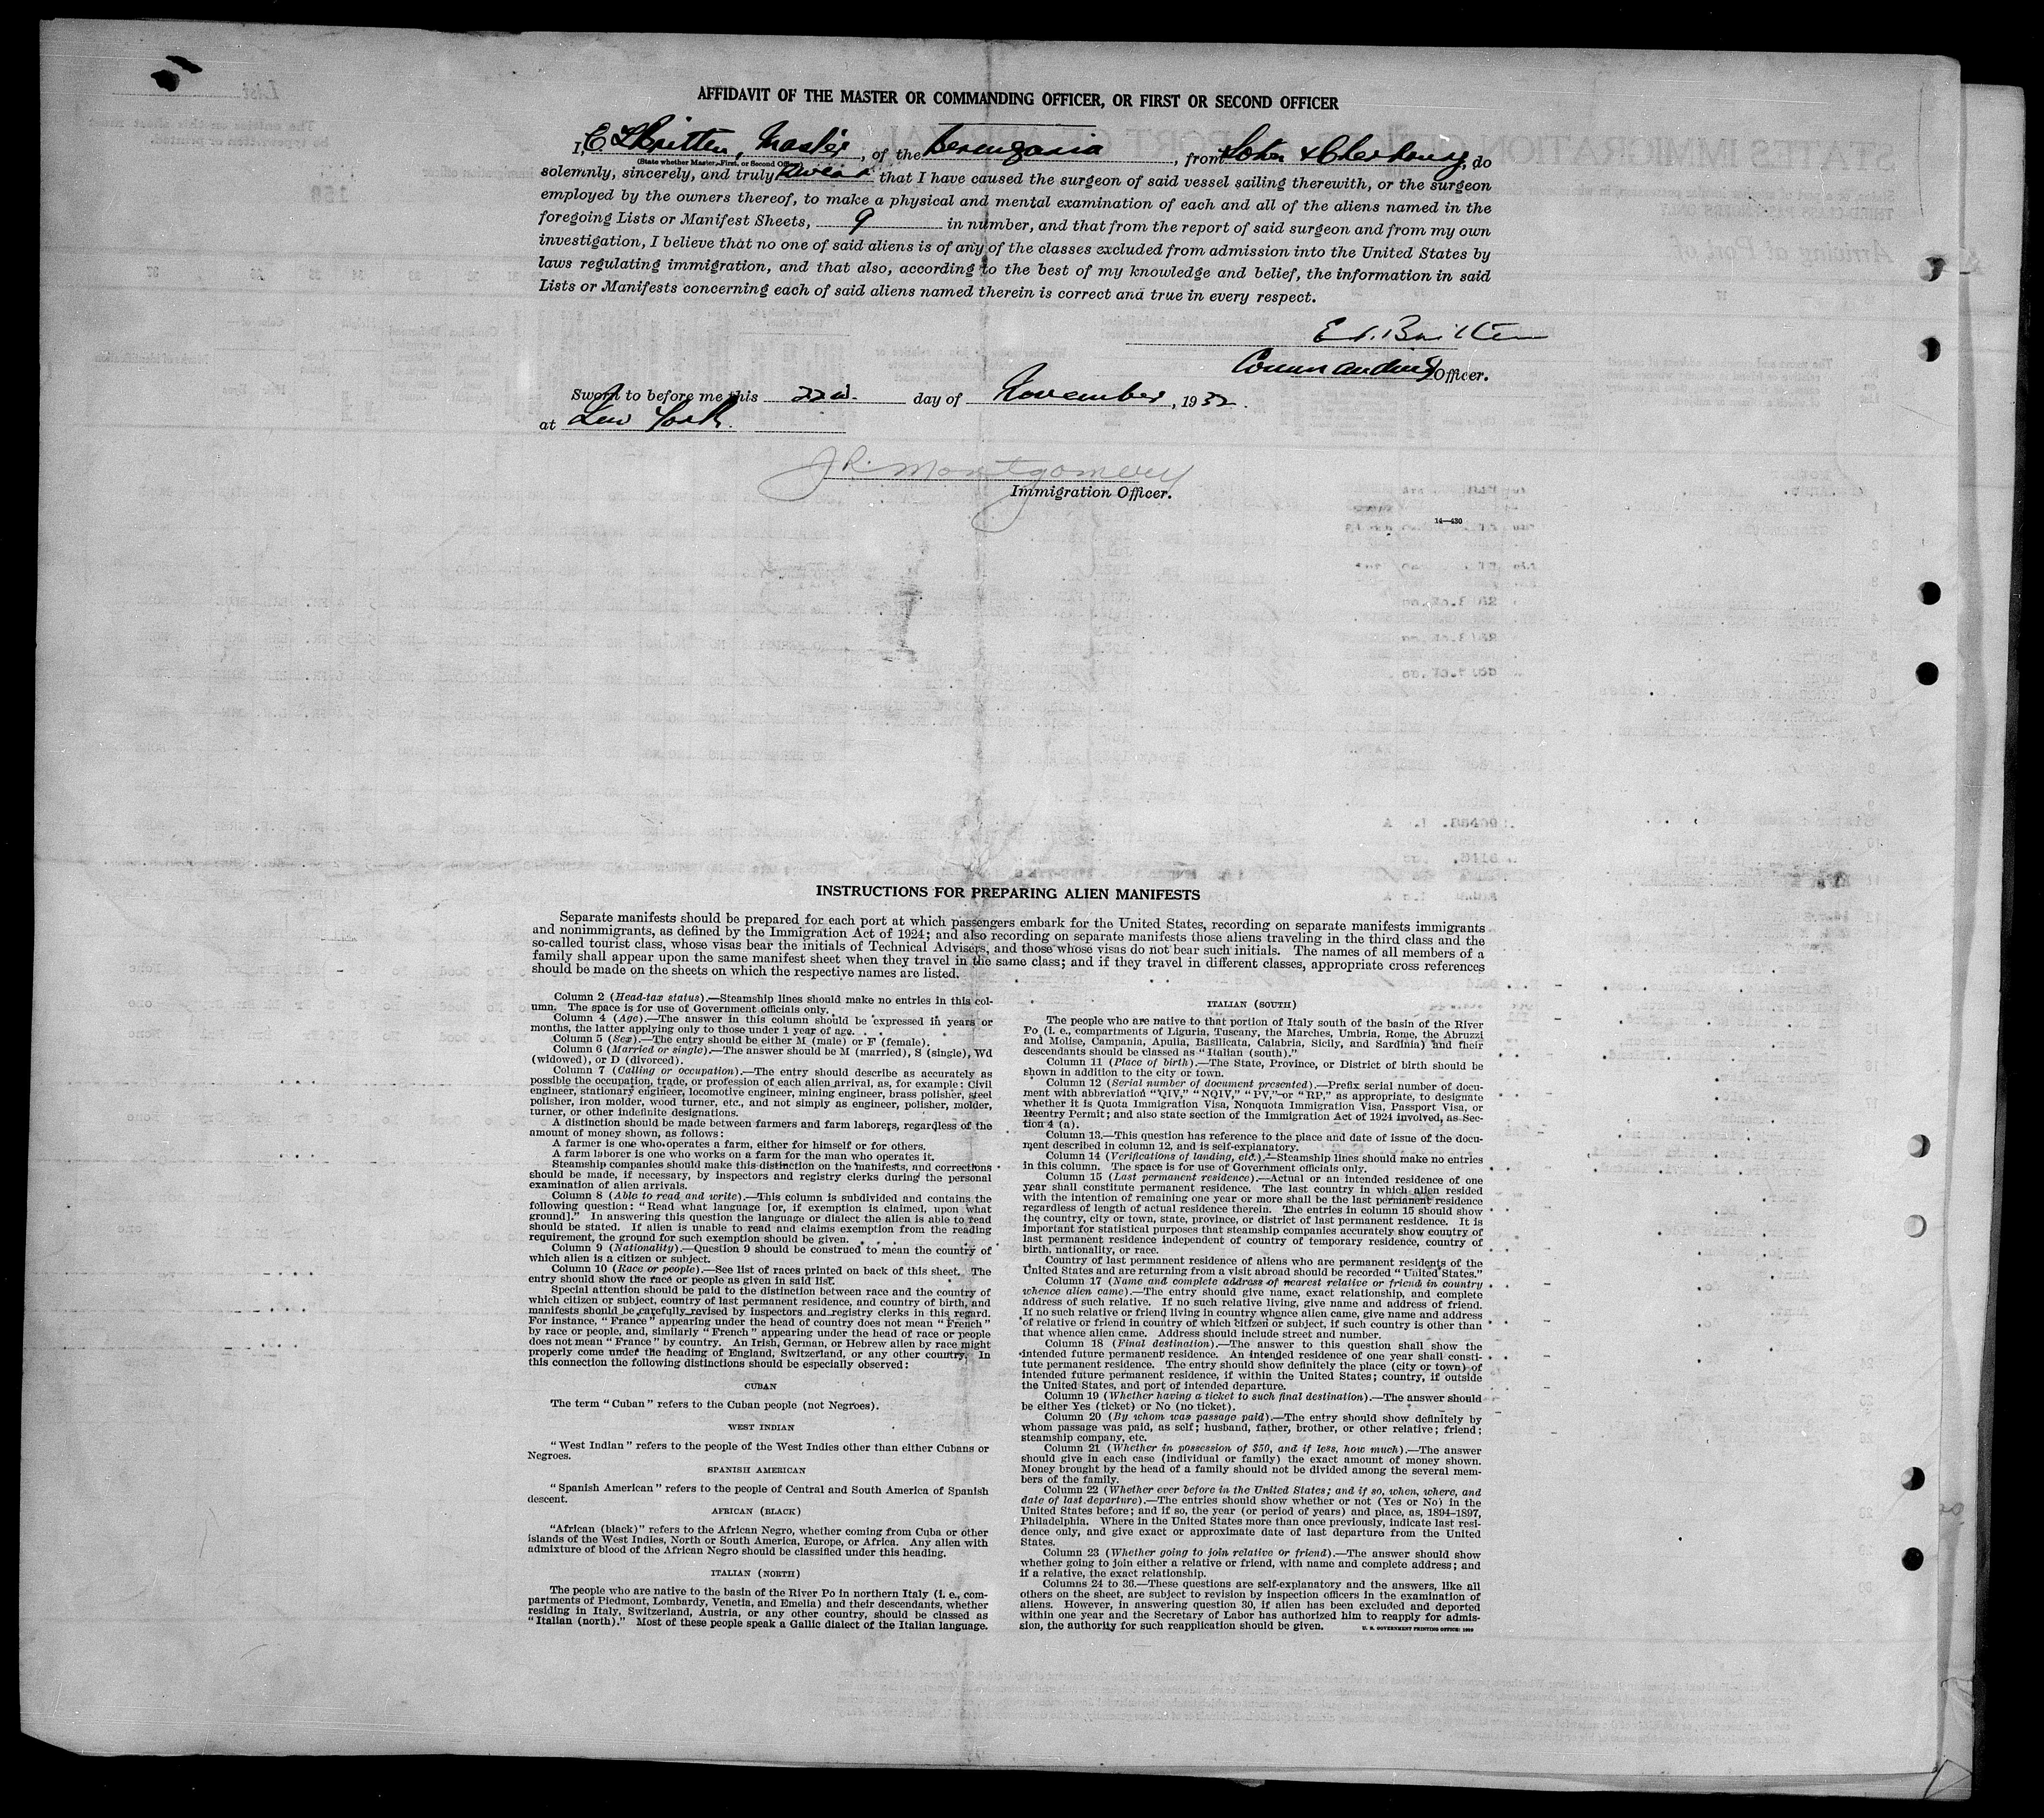 AFFIDAVIT OF THE MASTER OR COMMANDING OFFICER, OR FIRST OR SECOND OFFICER
I, E. Britten, Master, of the Berengaria, from Soton & Cherbourg, do
(State whether Master, First, or Second Officer)
solemnly, sincerely, and truly swear that I have caused the surgeon of said vessel sailing therewith, or the surgeon
employed by the owners thereof, to make a physical and mental examination of each and all of the aliens named in the
foregoing Lists or Manifest Sheets, 9 in number, and that from the report of said surgeon and from my own
investigation, I believe that no one of said aliens is of any of the classes excluded from admission into the United States by
laws regulating immigration, and that also, according to the best of my knowledge and belief, the information in said
Lists or Manifests concerning each of said aliens named therein is correct and true in every respect.
E. Britten
Commanding Officer.
Sworn to before me this 22nd day of November, 1932.
at New York.
J R. Montgomery
Immigration Officer.
14—430
INSTRUCTIONS FOR PREPARING ALIEN MANIFESTS
Separate manifests should be prepared for each port at which passengers embark for the United States, recording on separate manifests immigrants
and nonimmigrants, as defined by the Immigration Act of 1924; and also recording on separate manifests those aliens traveling in the third class and the
so-called tourist class, whose visas bear the initials of Technical Advisers, and those whose visas do not bear such initials. The names of all members of a
family shall appear upon the same manifest sheet when they travel in the same class; and if they travel in different classes, appropriate cross references
should be made on the sheets on which the respective names are listed.
Column 2 (Head-tax status).—Steamship lines should make no entries in this col-
umn. The space is for use of Government officials only.
Column 4 (Age).—The answer in this column should be expressed in years or
months, the latter applying only to those under 1 year of age.
Column 5 (Sex).—The entry should be either M (male) or F (female).
Column 6 (Married or single).—The answer should be M (married), S (single), Wd
(widowed), or D (divorced).
Column 7 (Calling or occupation).—The entry should describe as accurately as
possible the occupation, trade, or profession of each alien arrival, as, for example: Civil
engineer, stationary engineer, locomotive engineer, mining engineer, brass polisher, steel
polisher, iron molder, wood turner, etc., and not simply as engineer, polisher, molder,
turner, or other indefinite designations.
A distinction should be made between farmers and farm laborers, regardless of the
amount of money shown, as follows:
A farmer is one who operates a farm, either for himself or for others.
A farm laborer is one who works on a farm for the man who operates it.
Steamship companies should make this distinction on the manifests, and corrections
should be made, if necessary, by inspectors and registry clerks during the personal
examination of alien arrivals.
Column 8 (Able to read and write).—This column is subdivided and contains the
following question: "Read what language [or, if exemption is claimed, upon what
ground]." In answering this question the language or dialect the alien is able to read
should be stated. If alien is unable to read and claims exemption from the reading
requirement, the ground for such exemption should be given.
Column 9 (Nationality).—Question 9 should be construed to mean the country of
which alien is a citizen or subject.
Column 10 (Race or people).—See list of races printed on back of this sheet. The
entry should show the race or people as given in said list.
Special attention should be paid to the distinction between race and the country of
which citizen or subject, country of last permanent residence, and country of birth, and
manifests should be carefully revised by inspectors and registry clerks in this regard.
For instance, "France" appearing under the head of country does not mean "French"
by race or people, and, similarly "French" appearing under the head of race or people
does not mean "France" by country. An Irish, German, or Hebrew alien by race might
properly come under the heading of England, Switzerland, or any other country. In
this connection the following distinctions should be especially observed:
CUBAN
The term "Cuban" refers to the Cuban people (not Negroes).
WEST INDIAN
"West Indian" refers to the people of the West Indies other than either Cubans or
Negroes.
SPANISH AMERICAN
"Spanish American" refers to the people of Central and South America of Spanish
descent.
AFRICAN (BLACK)
"African (black)" refers to the African Negro, whether coming from Cuba or other
islands of the West Indies, North or South America, Europe, or Africa. Any alien with
admixture of blood of the African Negro should be classified under this heading.
ITALIAN (NORTH)
The people who are native to the basin of the River Po in northern Italy (i. e., com-
partments of Piedmont, Lombardy, Venetia, and Emelia) and their descendants, whether
residing in Italy, Switzerland, Austria, or any other country, should be classed as
"Italian (north)." Most of these people speak a Gallic dialect of the Italian language.
ITALIAN (SOUTH)
The people who are native to that portion of Italy south of the basin of the River
Po (i. e., compartments of Liguria, Tuscany, the Marches, Umbria, Rome, the Abruzzi
and Molise, Campania, Apulia, Basilicata, Calabria, Sicily, and Sardinia) and their
descendants should be classed as "Italian (south)."
Column 11 (Place of birth).—The State, Province, or District of birth should be
shown in addition to the city or town.
Column 12 (Serial number of document presented).—Prefix serial number of docu-
ment with abbreviation "QIV," "NQIV," "PV," or "RP," as appropriate, to designate
whether it is Quota Immigration Visa, Nonquota Immigration Visa, Passport Visa, or
Reentry Permit; and also state section of the Immigration Act of 1924 involved, as Sec-
tion 4 (a).
Column 13.—This question has reference to the place and date of issue of the docu-
ment described in column 12, and is self-explanatory.
Column 14 (Verifications of landing, etc.).—Steamship lines should make no entries
in this column. The space is for use of Government officials only.
Column 15 (Last permanent residence).—Actual or an intended residence of one
year shall constitute permanent residence. The last country in which alien resided
with the intention of remaining one year or more shall be the last permanent residence
regardless of length of actual residence therein. The entries in column 15 should show
the country, city or town, state, province, or district of last permanent residence. It is
important for statistical purposes that steamship companies accurately show country of
last permanent residence independent of country of temporary residence, country of
birth, nationality, or race.
Country of last permanent residence of aliens who are permanent residents of the
United States and are returning from a visit abroad should be recorded "United States."
Column 17 (Name and complete address of nearest relative or friend in country
whence alien came).—The entry should give name, exact relationship, and complete
address of such relative. If no such relative living, give name and address of friend.
If no such relative or friend living in country whence alien came, give name and address
of relative or friend in country of which citizen or subject, if such country is other than
that whence alien came. Address should include street and number.
Column 18 (Final destination).—The answer to this question shall show the
intended future permanent residence. An intended residence of one year shall consti-
tute permanent residence. The entry should show definitely the place (city or town) of
intended future permanent residence, if within the United States; country, if outside
the United States, and port of intended departure.
Column 19 (Whether having a ticket to such final destination).—The answer should
be either Yes (ticket) or No (no ticket).
Column 20 (By whom was passage paid).—The entry should show definitely by
whom passage was paid, as self; husband, father, brother, or other relative; friend;
steamship company, etc.
Column 21 (Whether in possession of $50, and if less, how much).—The answer
should give in each case (individual or family) the exact amount of money shown.
Money brought by the head of a family should not be divided among the several mem-
bers of the family.
Column 22 (Whether ever before in the United States; and if so, when, where, and
date of last departure).—The entries should show whether or not (Yes or No) in the
United States before; and if so, the year (or period of years) and place, as, 1894–1897,
Philadelphia. Where in the United States more than once previously, indicate last resi-
dence only, and give exact or approximate date of last departure from the United
States.
Column 23 (Whether going to join relative or friend).—The answer should show
whether going to join either a relative or friend, with name and complete address; and
if a relative, the exact relationship.
Columns 24 to 36.—These questions are self-explanatory and the answers, like all
others on the sheet, are subject to revision by inspection officers in the examination of
aliens. However, in answering question 30, if alien has been excluded and deported
within one year and the Secretary of Labor has authorized him to reapply for admis-
sion, the authority for such reapplication should be given.
U. S. GOVERNMENT PRINTING OFFICE: 1929